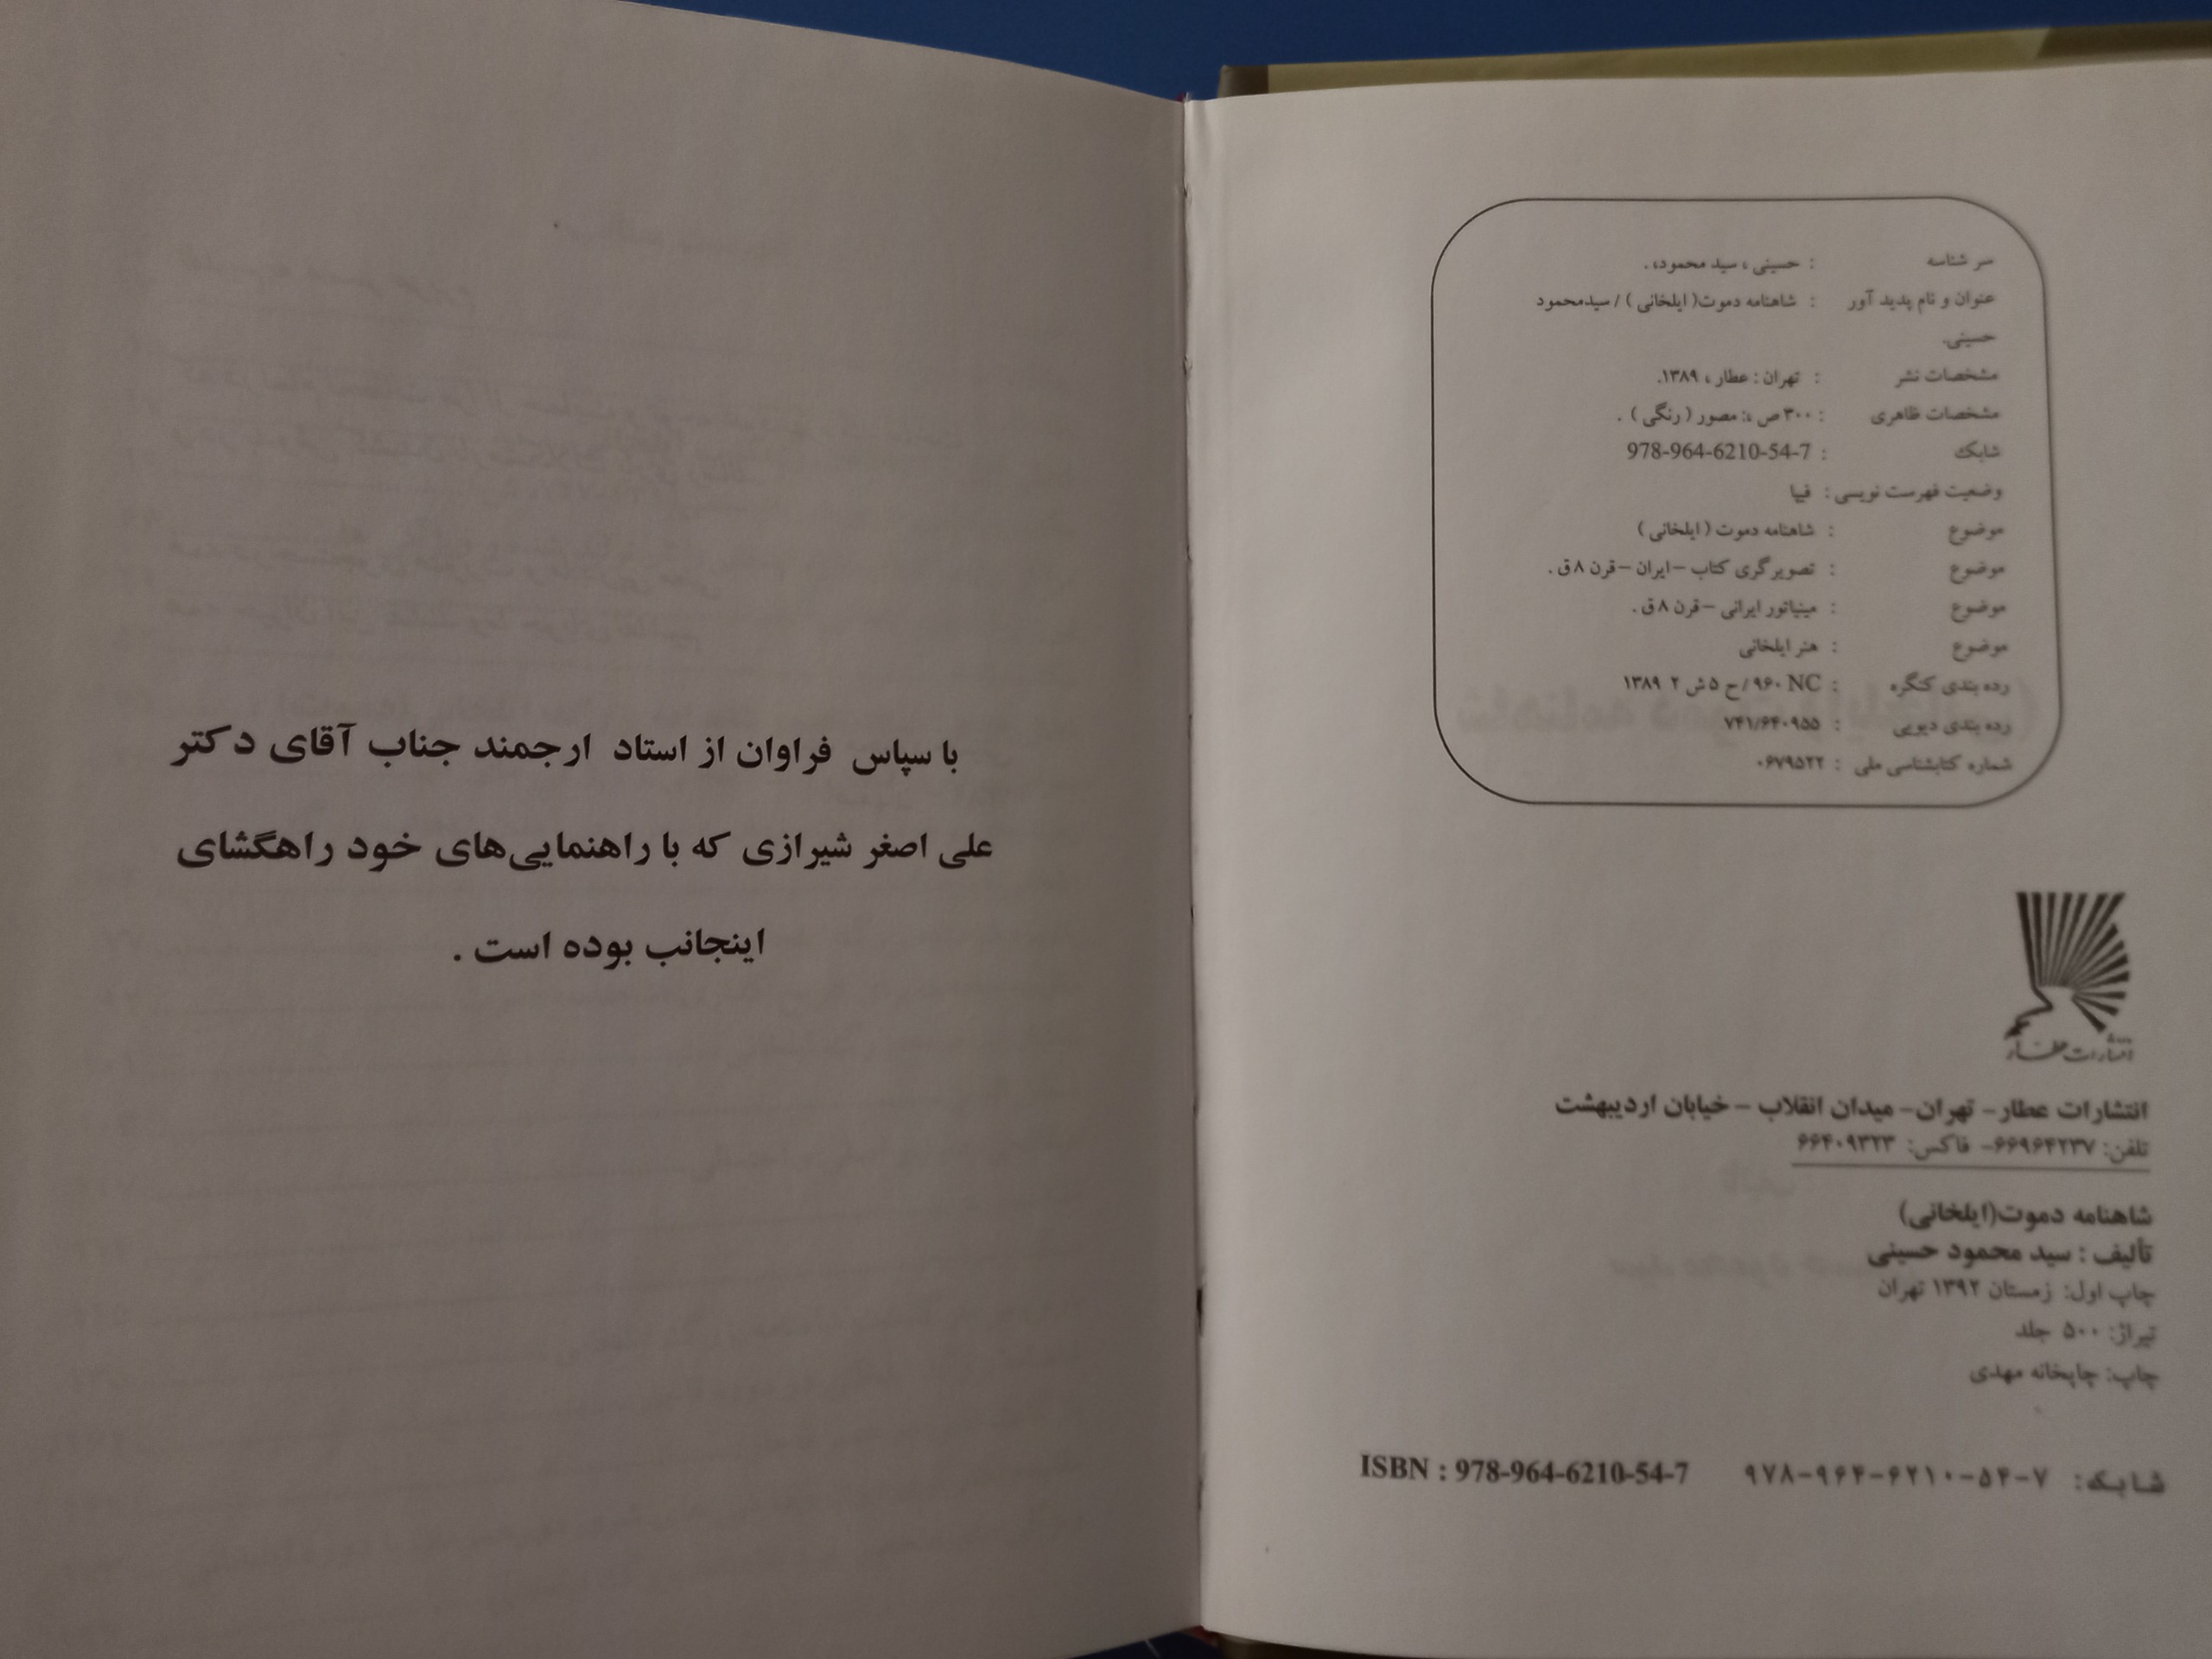 سر شناسه : حسینی ، سید محمود، .
عنوان و نام پدید آور : شاهنامه دموت( ایلخانی ) / سیدمحمود
حسینی.
مشخصات نشر : تهران : عطار ، ۱۳۸۹.
مشخصات ظاهری : ۳۰۰ ص ،: مصور ( رنگی ) .
شابک : 978-964-6210-54-7
وضعیت فهرست نویسی : فیپا
موضوع : شاهنامه دموت ( ایلخانی )
موضوع : تصویرگری کتاب –ایران –قرن ۸ ق .
موضوع : مینیاتور ایرانی –قرن ۸ ق .
موضوع : هنر ایلخانی
رده بندی کنگره : NC ۹۶۰ / ح ۵ ش ۲ ۱۳۸۹
رده بندی دیویی : ۷۴۱/۶۴۰۹۵۵
شماره کتابشناسی ملی : ۰۶۷۹۵۲۲
انتشارات عطار
انتشارات عطار – تهران – میدان انقلاب – خیابان اردیبهشت
تلفن: ۶۶۹۶۴۲۳۷– فاکس: ۶۶۴۰۹۳۲۳
شاهنامه دموت(ایلخانی)
تألیف : سید محمود حسینی
چاپ اول: زمستان ۱۳۹۲ تهران
تیراژ: ۵۰۰ جلد
چاپ: چاپخانه مهدی
شابک: ۹۷۸-۹۶۴-۶۲۱۰-۵۴-۷ ISBN : 978-964-6210-54-7
با سپاس فراوان از استاد ارجمند جناب آقای دکتر
علی اصغر شیرازی که با راهنمایی‌های خود راهگشای
اینجانب بوده است .